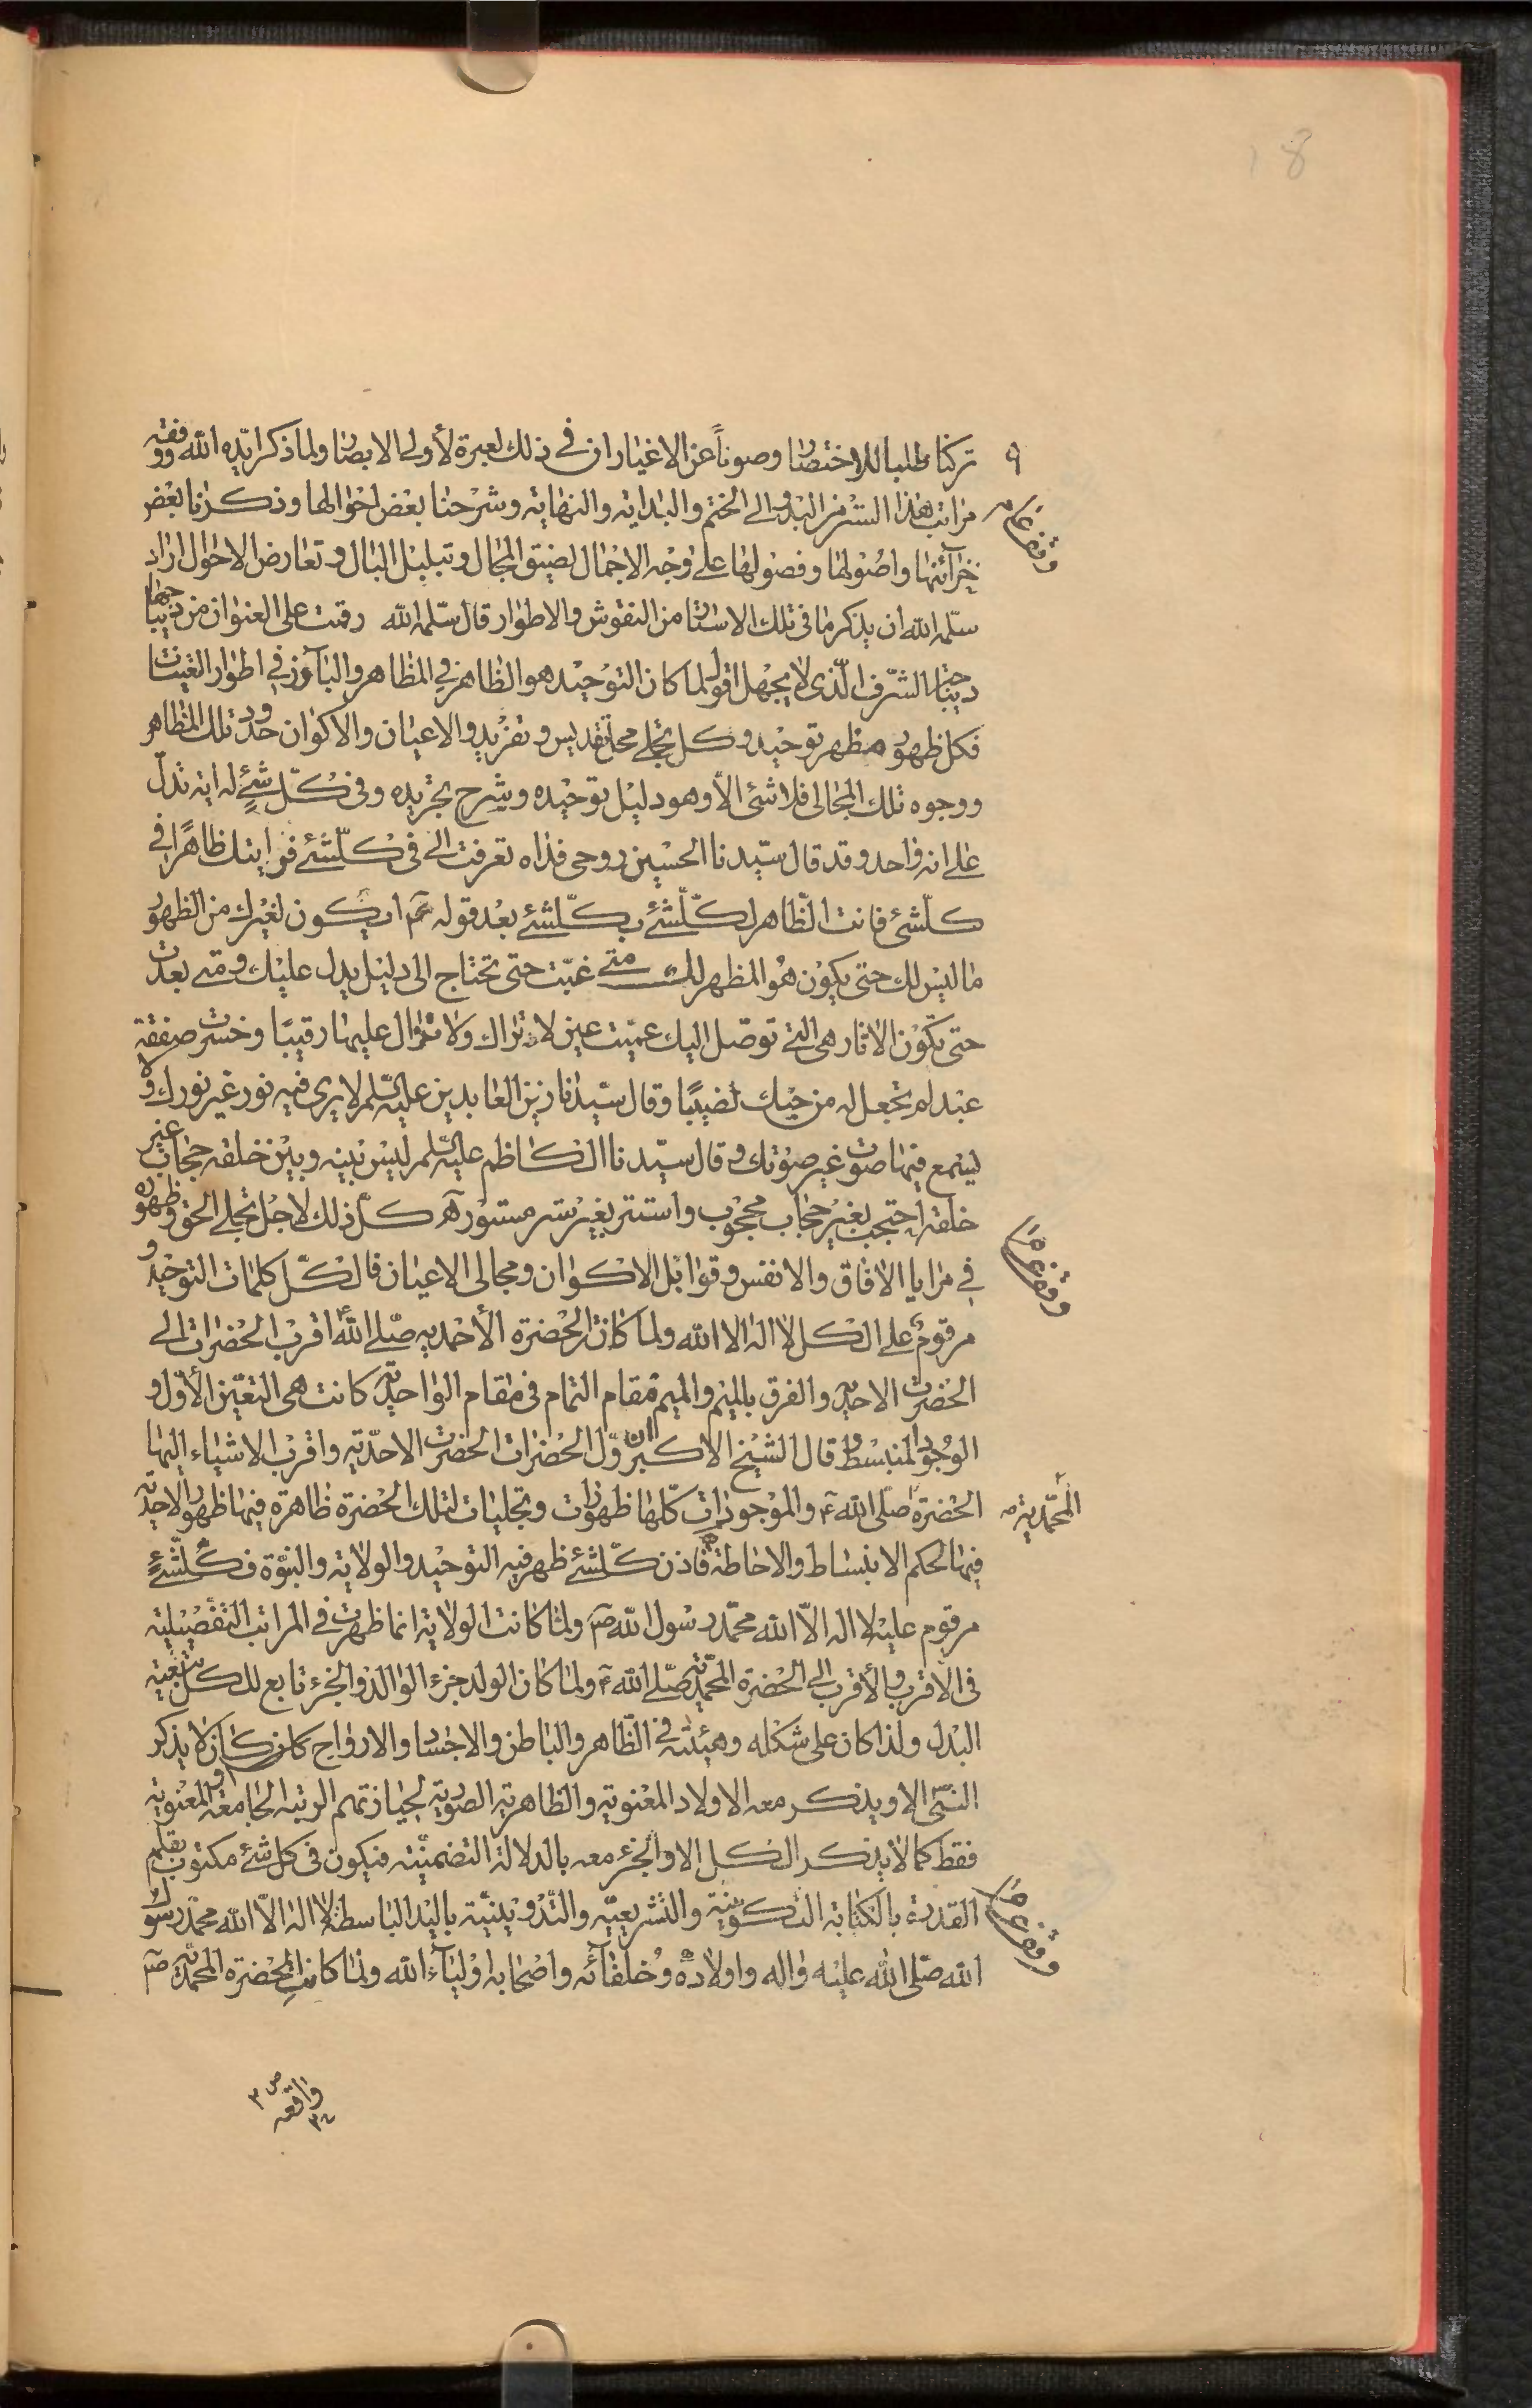 18
٩ تركنا طلبا للاختصار وصوناً عن الاغيار ان في ذلك لعبرة لأولي الابصار ولما ذكر ايّده الله ووفقه
مراتب هذا السّر من البدو الى الختم والبداية والنهاية وشرحنا بعض احوالها وذكرنا بعض
خزآئنها واصولها وفصولها على وجه الاجمال لضيق المجال وتبلبل البال وتعارض الاحوال اراد
سلّمه الله ان يذكر ما في تلك الاستار من النقوش والاطوار قال سلّمه الله رقمت على العنوان من ديباجها
ديباجة الشّرف الّذي لا يجهل اقول لما كان التوحيد هو الظاهر في المظاهر والبارز في اطوار
فكل ظهور مظهر توحيد وكل تجلي محل تقديس وتفريد والاعيان والاكوان حدود تلك المظاهر
ووجوه تلك المجالي فلا شئ الّا وهو دليل توحيده وشرح تجريده وفي كلّ شئٍ له اية تدلّ
على انه واحد وقد قال سيّدنا الحسين روحي فداه تعرفت الي في كلّشئ فرايتك ظاهرًا في
كلّشئ فانت الظّاهر لكلّشئ بكلّشئ بعد قوله ع ايكون لغيرك من الظهور
ما ليس لك حتى يكون هو المظهر لك متى غبت حتى تحتاج الى دليل يدل عليك ومتى بعدت
حتى تكون الاثار هي التي توصل اليك عميت عين لا تراك ولا تزال عليها رقيبًا وخسرت صفقة
عبد لم تجعل له من حبك نصيبًا وقال سيّدنا زين العابدين عليه السّلم لا يرى فيه نور غير نورك ولا
يسمع فيها صوت غير صوتك وقال سيّدنا الكاظم عليه السّلم ليس بينه وبين خلقه حجاب غير
خلقه احتجب بغير حجاب محجوب واستتر بغير ستر مستور آه كل ذلك لاجل تجلي الحق وظهوره
في مرايا الافاق والانفس وقوابل الاكوان ومجالي الاعيان فالكلّ كلمات التوحيد و
مرقوم على الكل لا اله الا الله ولما كانت الحضرة الأحمدية صلّى الله اقرب الحضرات الى
الحضرت الاحدية والفرق بالميم والميم مقام التمام في مقام الواحدية كانت هي التعيّن الأوّل و
الوجود المنبسط قال الشيخ الاكبر ان اوّل الحضرات الحضرت الاحدّية واقرب الاشياء اليها
الحضرة المحمّدية صلى الله والموجودات كلّها ظهورات وتجليات لتلك الحضرة ظاهرة فيها ظهور الاحدية
فيها لحكم الانبساط والاحاطة فاذن كلّشئ ظهر فيه التوحيد والولاية والنبوّة فكلّشئٍ
مرقوم عليه لا اله الاّ الله محمّد رسول الله ص ولمّا كانت الولاية انما ظهرت في المراتب التفصيلية
في الاقرب والأقرب الى الحضرة المحمّدية صلّى الله ولمّا كان الولد جزء الوالد والجزء تابع للكل تبعية
البدل ولذا كان على شكله وهيئته في الظّاهر والباطن والاجساد والارواح كان لا يذكر
النبّي الا ويذكر معه الاولاد المعنوية والظاهرية الصورية لحيازتهم الرتبة الجامعة والمعنوية
فقط كما لا يذكر الكل الا والجزء معه بالدلالة التضمنيّة فيكون في كل شئ مكتوب بقلم
القدرة بالكتابة التكوينية والتشريعيّه والتّدوينيّة باليد الباسطة لا اله الاّ الله محمّد رسول
الله صلّى الله عليه واله واولاده وخلفائه واصحابه اوليآء الله ولمّا كانت الحضرة المحمّدية ص
واقعه